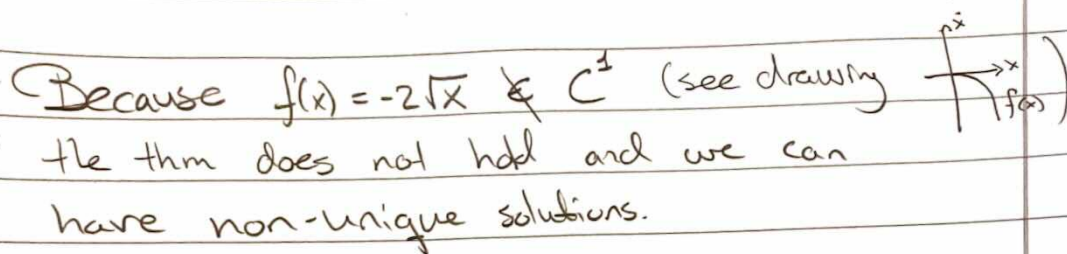 Because f(x) = -2√x ∉ C¹ (see drawing ẋ x f(x))
the thm does not hold and we can
have non-unique solutions.